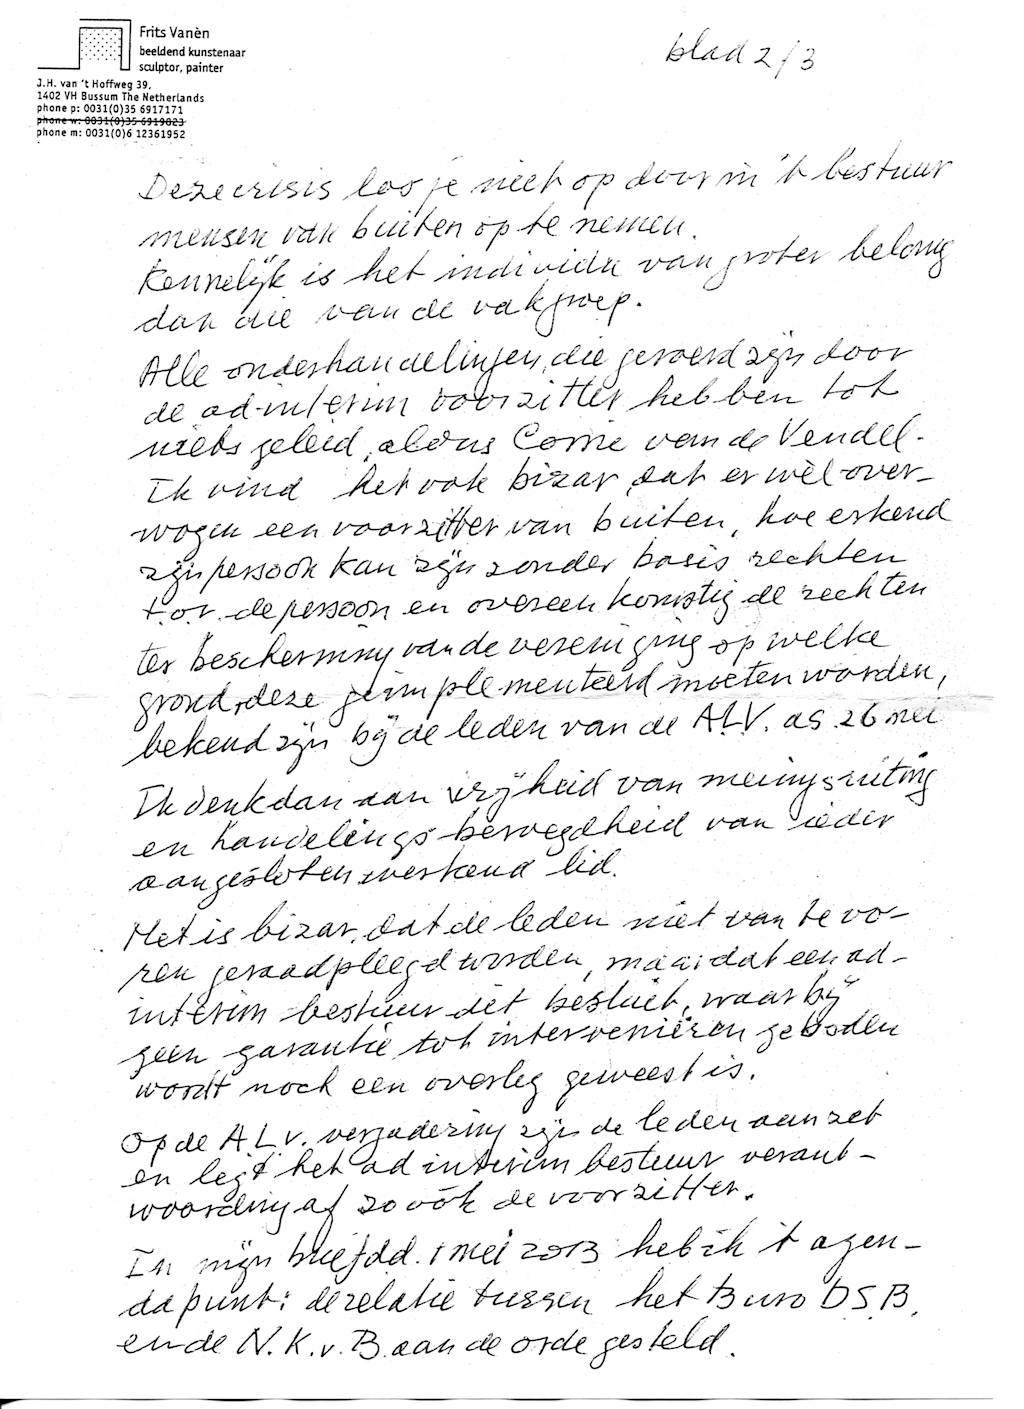 Frits Vanèn
beeldend kunstenaar
sculptor, painter
J.H. van 't Hoffweg 39,
1402 VH Bussum The Netherlands
phone p: 0031(0)35 6917171
phone w: 0031(0)35 6919823
phone m: 0031(0)6 12361952
blad 2/3
Deze crisis los je niet op door in 't bestuur
mensen van buiten op te nemen.
Kennelijk is het individu van groter belang
dan die van de vakgroep.
Alle onderhandelingen, die gevoerd zijn door
de ad-interim voorzitter hebben tot
niets geleid, aldus Corrie van de Vendel.
Ik vind het ook bizar, dat er wèl over-
wogen een voorzitter van buiten, hoe erkend
zijn persoon kan zijn zonder basis rechten
t.o.v. de persoon en overeenkomstig de rechten
ter bescherming van de vereniging op welke
grond, deze geimplementeerd moeten worden,
bekend zijn bij de leden van de A.L.V. as 26 mei
Ik denk dan aan vrijheid van meiningsuiting
en handelings-bevoegdheid van ieder
aangesloten werkend lid.
Het is bizar, dat de leden niet van te vo-
ren geraadpleegd worden, maar dat een ad-
interim bestuur dit besluit, waarbij
geen garantie tot interveniëren geboden
wordt noch een overleg geweest is.
Op de A.L.V. vergadering zijn de leden aan zet
en legt het ad interim bestuur verant-
woording af zo oók de voorzitter.
In mijn brief dd. 1 mei 2013 heb ik 't agen-
dapunt: de relatie tussen het Buro D.S.B.
en de N.K.v.B. aan de orde gesteld.